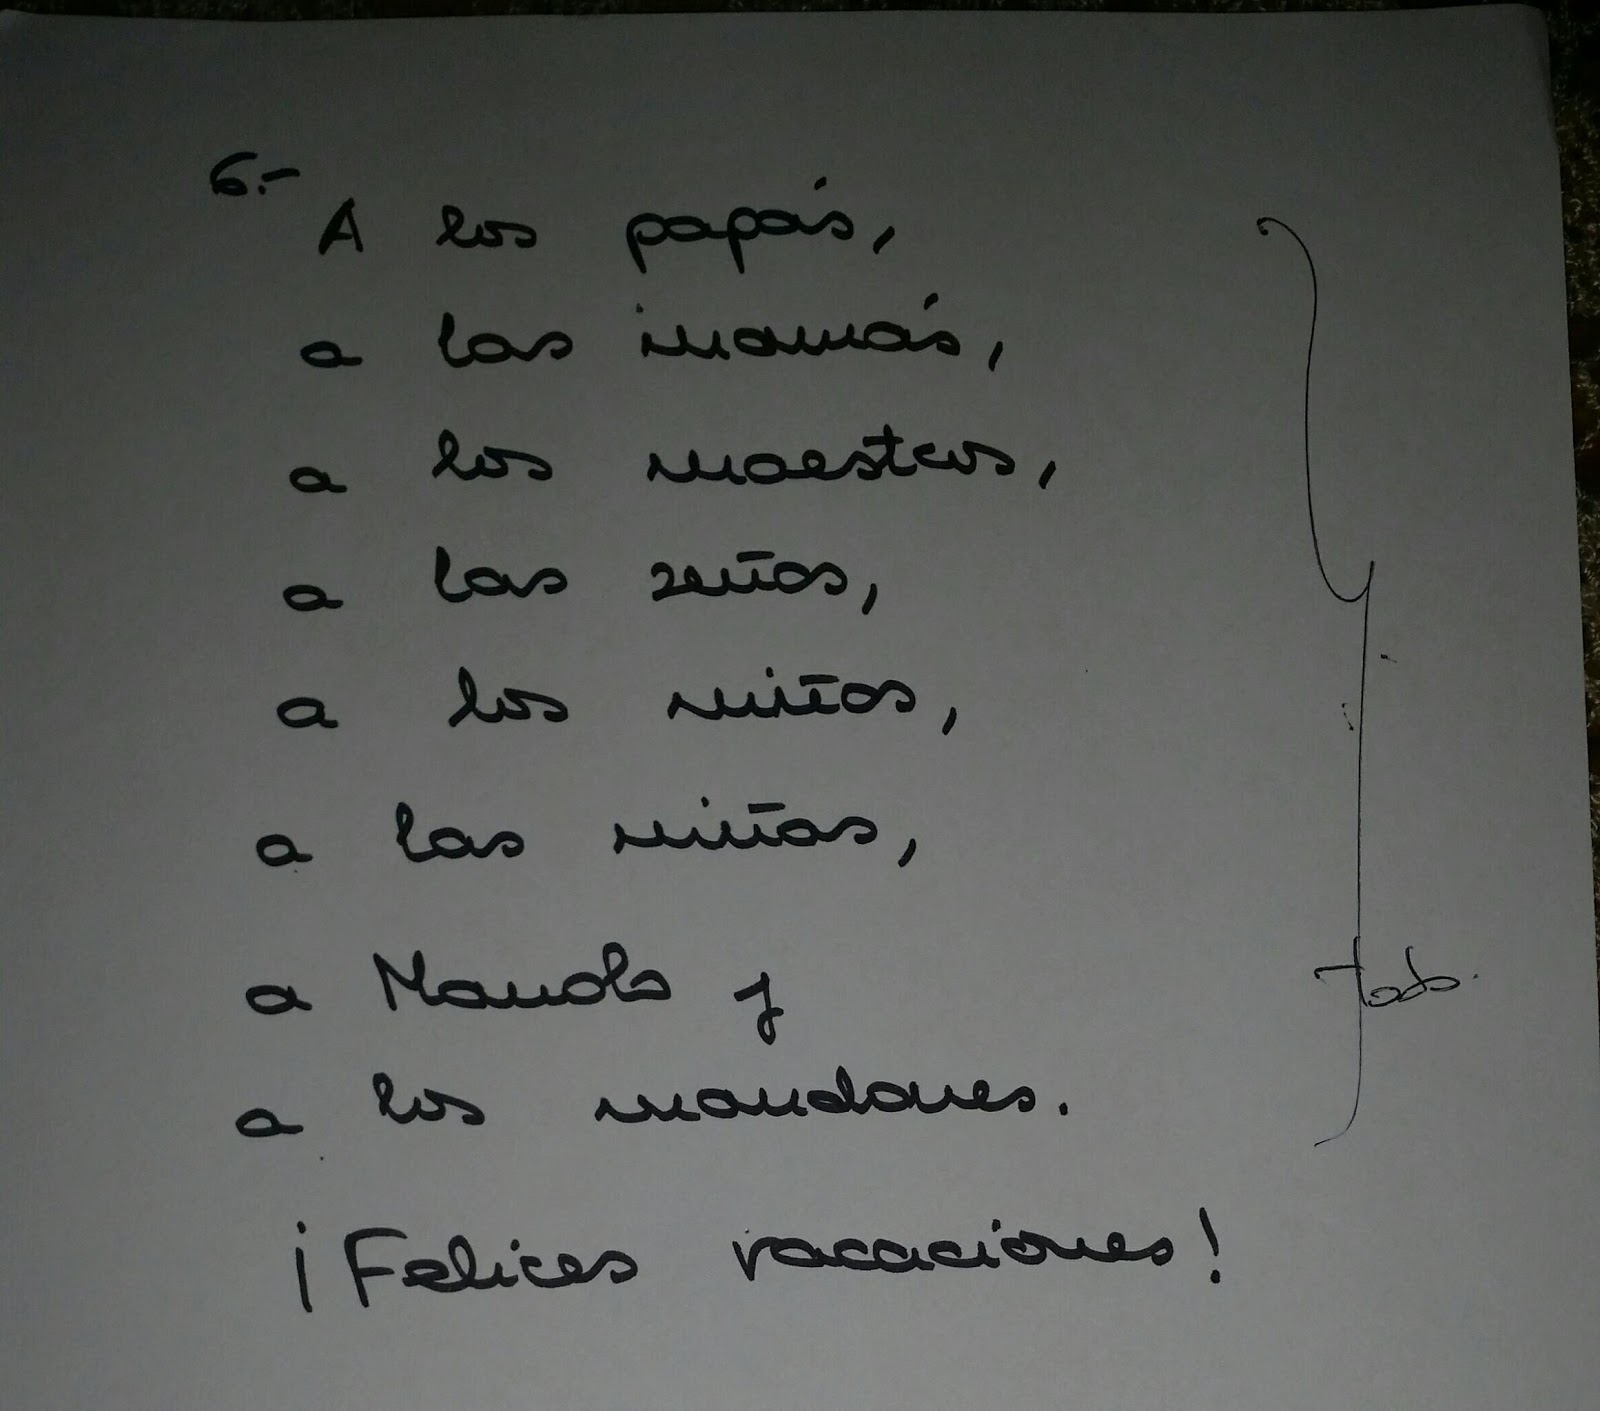 6.-
A los papás,
a las mamás,
a los maestros,
a las seños,
a los niños,
a las niñas,
a Manolo y
todo.
a los mandones.
¡Felices vacaciones!